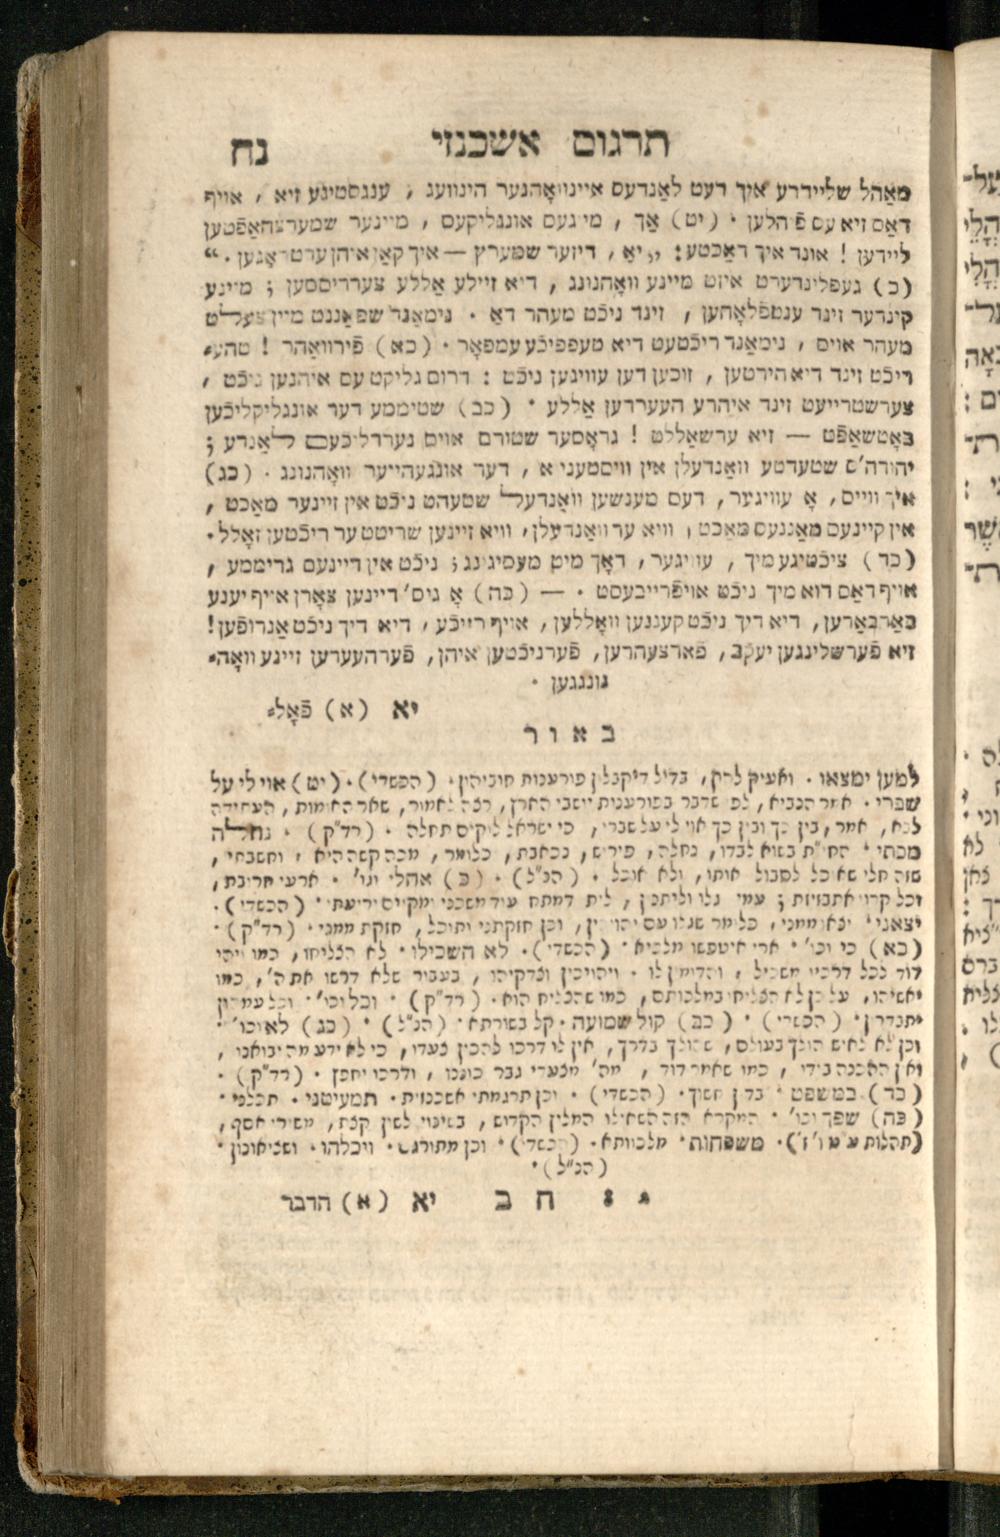 תרגום אשכנזי נח
מאַהל שליידרע איך דעט לאַנדעס איינוואָהנער הינוועג , ענגסטיגע זיא , אויף
דאַס זיא עס פֿיהלען · (יט) אַך , מיינעם אונגליקעס , מיינער שמערצהאַפֿטען
ליידען ! אונד איך דאַכטע: „יאַ , דיזער שמערץ — איך קאַן איהן ערטראַגען . “
(כ) געפלינדערט איזט מיינע וואָהנונג , דיא זיילע אַללע צערריססען ; מיינע
קינדער זינד ענטפֿלאָהען , זינד ניכֿט מעהר דאַ · נימאַנד שפאַננט מיין צעלט
מעהר אויס , נימאַנד ריכֿטעט דיא טעפפיכֿע עמפאָר · (כא) פֿירוואַהר ! טהע⸗
ריכֿט זינד דיא הירטען , זוכען דען עוויגען ניכֿט : דרום גליקט עס איהנען ניכֿט ,
צערשטרייעט זינד איהרע העערדען אַללע · (כב) שטיממע דער אונגליקליכֿען
באָטשאַפֿט — זיא ערשאַללט ! גראָסער שטורם אויס נערדליכֿעם לאַנדע ;
יהודה'ס שטעדטע וואַנדעלן אין וויסטעניא , דער אונגעהייער וואָהנונג · (כג)
איך ווייס, אָ עוויגער, דעם מענשען וואַנדעל שטעהט ניכֿט אין זיינער מאַכט ,
אין קיינעס מאַננעס מאַכט , וויא ער וואַנדעלן, וויא זיינען שריטט ער ריכֿטען זאָלל ·
(כד) ציכֿטיגע מיך , עוויגער, דאָך מיט מעסיגונג ; ניכֿט אין דיינעם גריממע ,
אויף דאַס דוא מיך ניכֿט אויפֿרייבעסט · — (כה) אָ גיס' דיינען צאָרן אויף יענע
באַרבאַרען, דיא דיך ניכֿט קעננען וואָללען, אויף רייכֿע , דיא דיך ניכֿט אַנרופֿען!
זיא פֿערשלינגען יעקב, פֿארצעהרען, פֿערניכֿטען איהן, פֿערהעערען זיינע וואָה⸗
נונגען ·
יא (א) פֿאָל⸗
באור
למען ימצאו · ואעיק להון, בדיל דיקבלון פורענות חוביהון · (הכשדי) · (יט) אוי לי על
שברי · אמר הנביא, לפי שדבר בפורענות יושבי הארץ, רצה לאמור, שאר האומות, העתידה
לבא, אמר, בין כך ובין כך אוי לי על שברי, כי ישראל לוקים תחלה · (רד"ק) · נחלה
מכתי · החי"ת בשוא לבדו, נחלה, פירוש, נכאבת, כלומר, מכה קשה היא , וחשבתי,
שזה חלי שאוכל לסבול אותו, ולא אוכל · (הנ"ל) · (כ) אהלי וגו' · ארעי חריבת,
וכל קרוי אתבזיזת ; עמי גלו וליתכון , לית דמתח עוד משכני ומקים יריעתי · (הכשדי) ·
יצאני · יצאו ממני, כלומר שגלו עם יהויכין, וכן חזקתני ותוכל, חזקת ממני · (רד"ק) ·
(כא) כי וכו' · ארי איטפשו מלכיא · (הכשדי) · לא השכילו · לא הצליחו, כמו ויהי
דוד לכל דרכיו משכיל , והדומין לו · ויהויכין וצדקיהו , בעבור שלא דרשו את ה', כמו
יאשיהו, על כן לא הצליחו במלכותם, כמו שהצליח הוא · (רד"ק) · וכל וכו' · וכל עמהון
יתבדרון · (הכשדי) · (כב) קול שמועה · קל בשורתא · (הנ"ל) · (כג) לא וכו' ·
וכן לא לאיש הולך בעולם, שהולך בדרך, אין לו דרכו להכין צעדו, כי לא ידע מה יבואנו ,
ואין ההכנה בידו , כמו שאמר דוד , מה' מצעדי גבר כוננו , ודרכו יחפץ · (רד"ק) ·
(כד) במשפט · בדין חשוך · (הכשדי) · וכן תרגמתי אשכנזית · תמעיטני · תכלני ·
(כה) שפך וכו' · המקרא הזה השאילו המלין הקדוש, בשינוי לשון קצת, משירי אסף,
(תהלות ע"ט ו'ז') · משפחות · מלכוותא · (הכשדי) · וכן מתורגם · ויכלהו · ושציאונון ·
(הנ"ל) ·
ח ב יא (א) הדבר